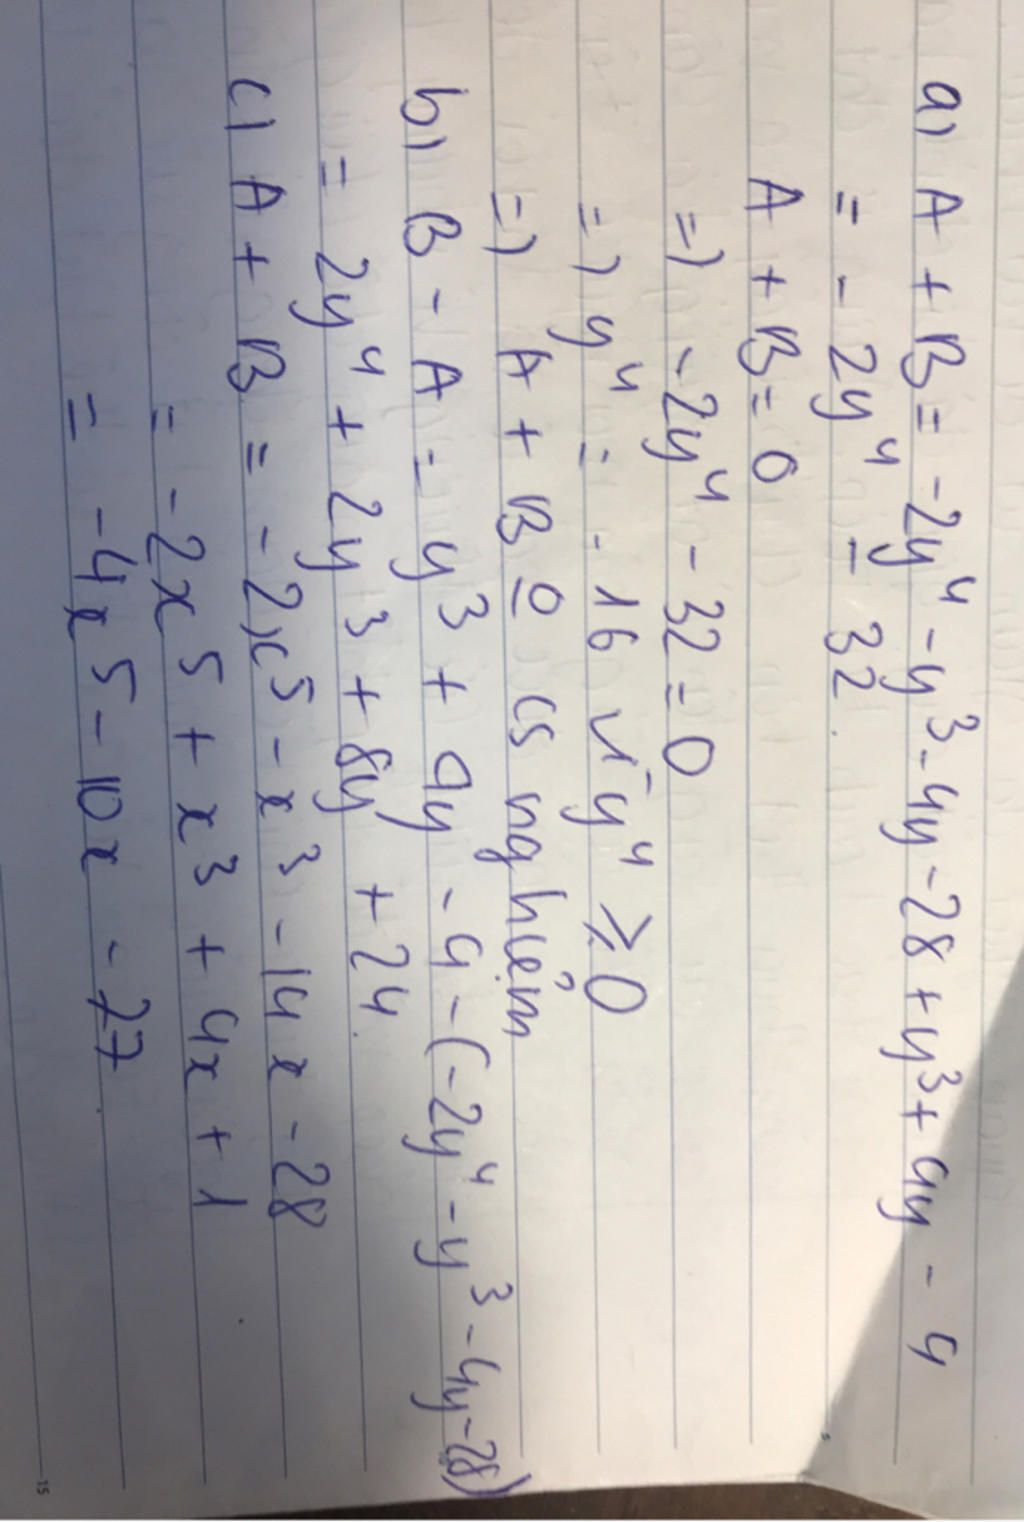 a) A + B = -2y⁴ - y³ - 4y - 28 + y³ + 4y - 4
= - 2y⁴ - 32.
A + B = 0
=) - 2y⁴ - 32 = 0
=) y⁴ = - 16 vì y⁴ ≥ 0
=) A + B o cs nghiệm
b) B - A = y³ + 4y - 4 - (-2y⁴ - y³ - 4y - 28)
= 2y⁴ + 2y³ + 8y + 24.
c) A + B = - 2x⁵ - x³ - 14x - 28
= - 2x⁵ + x³ + 4x + 1
= - 4x⁵ - 10x - 27.
15